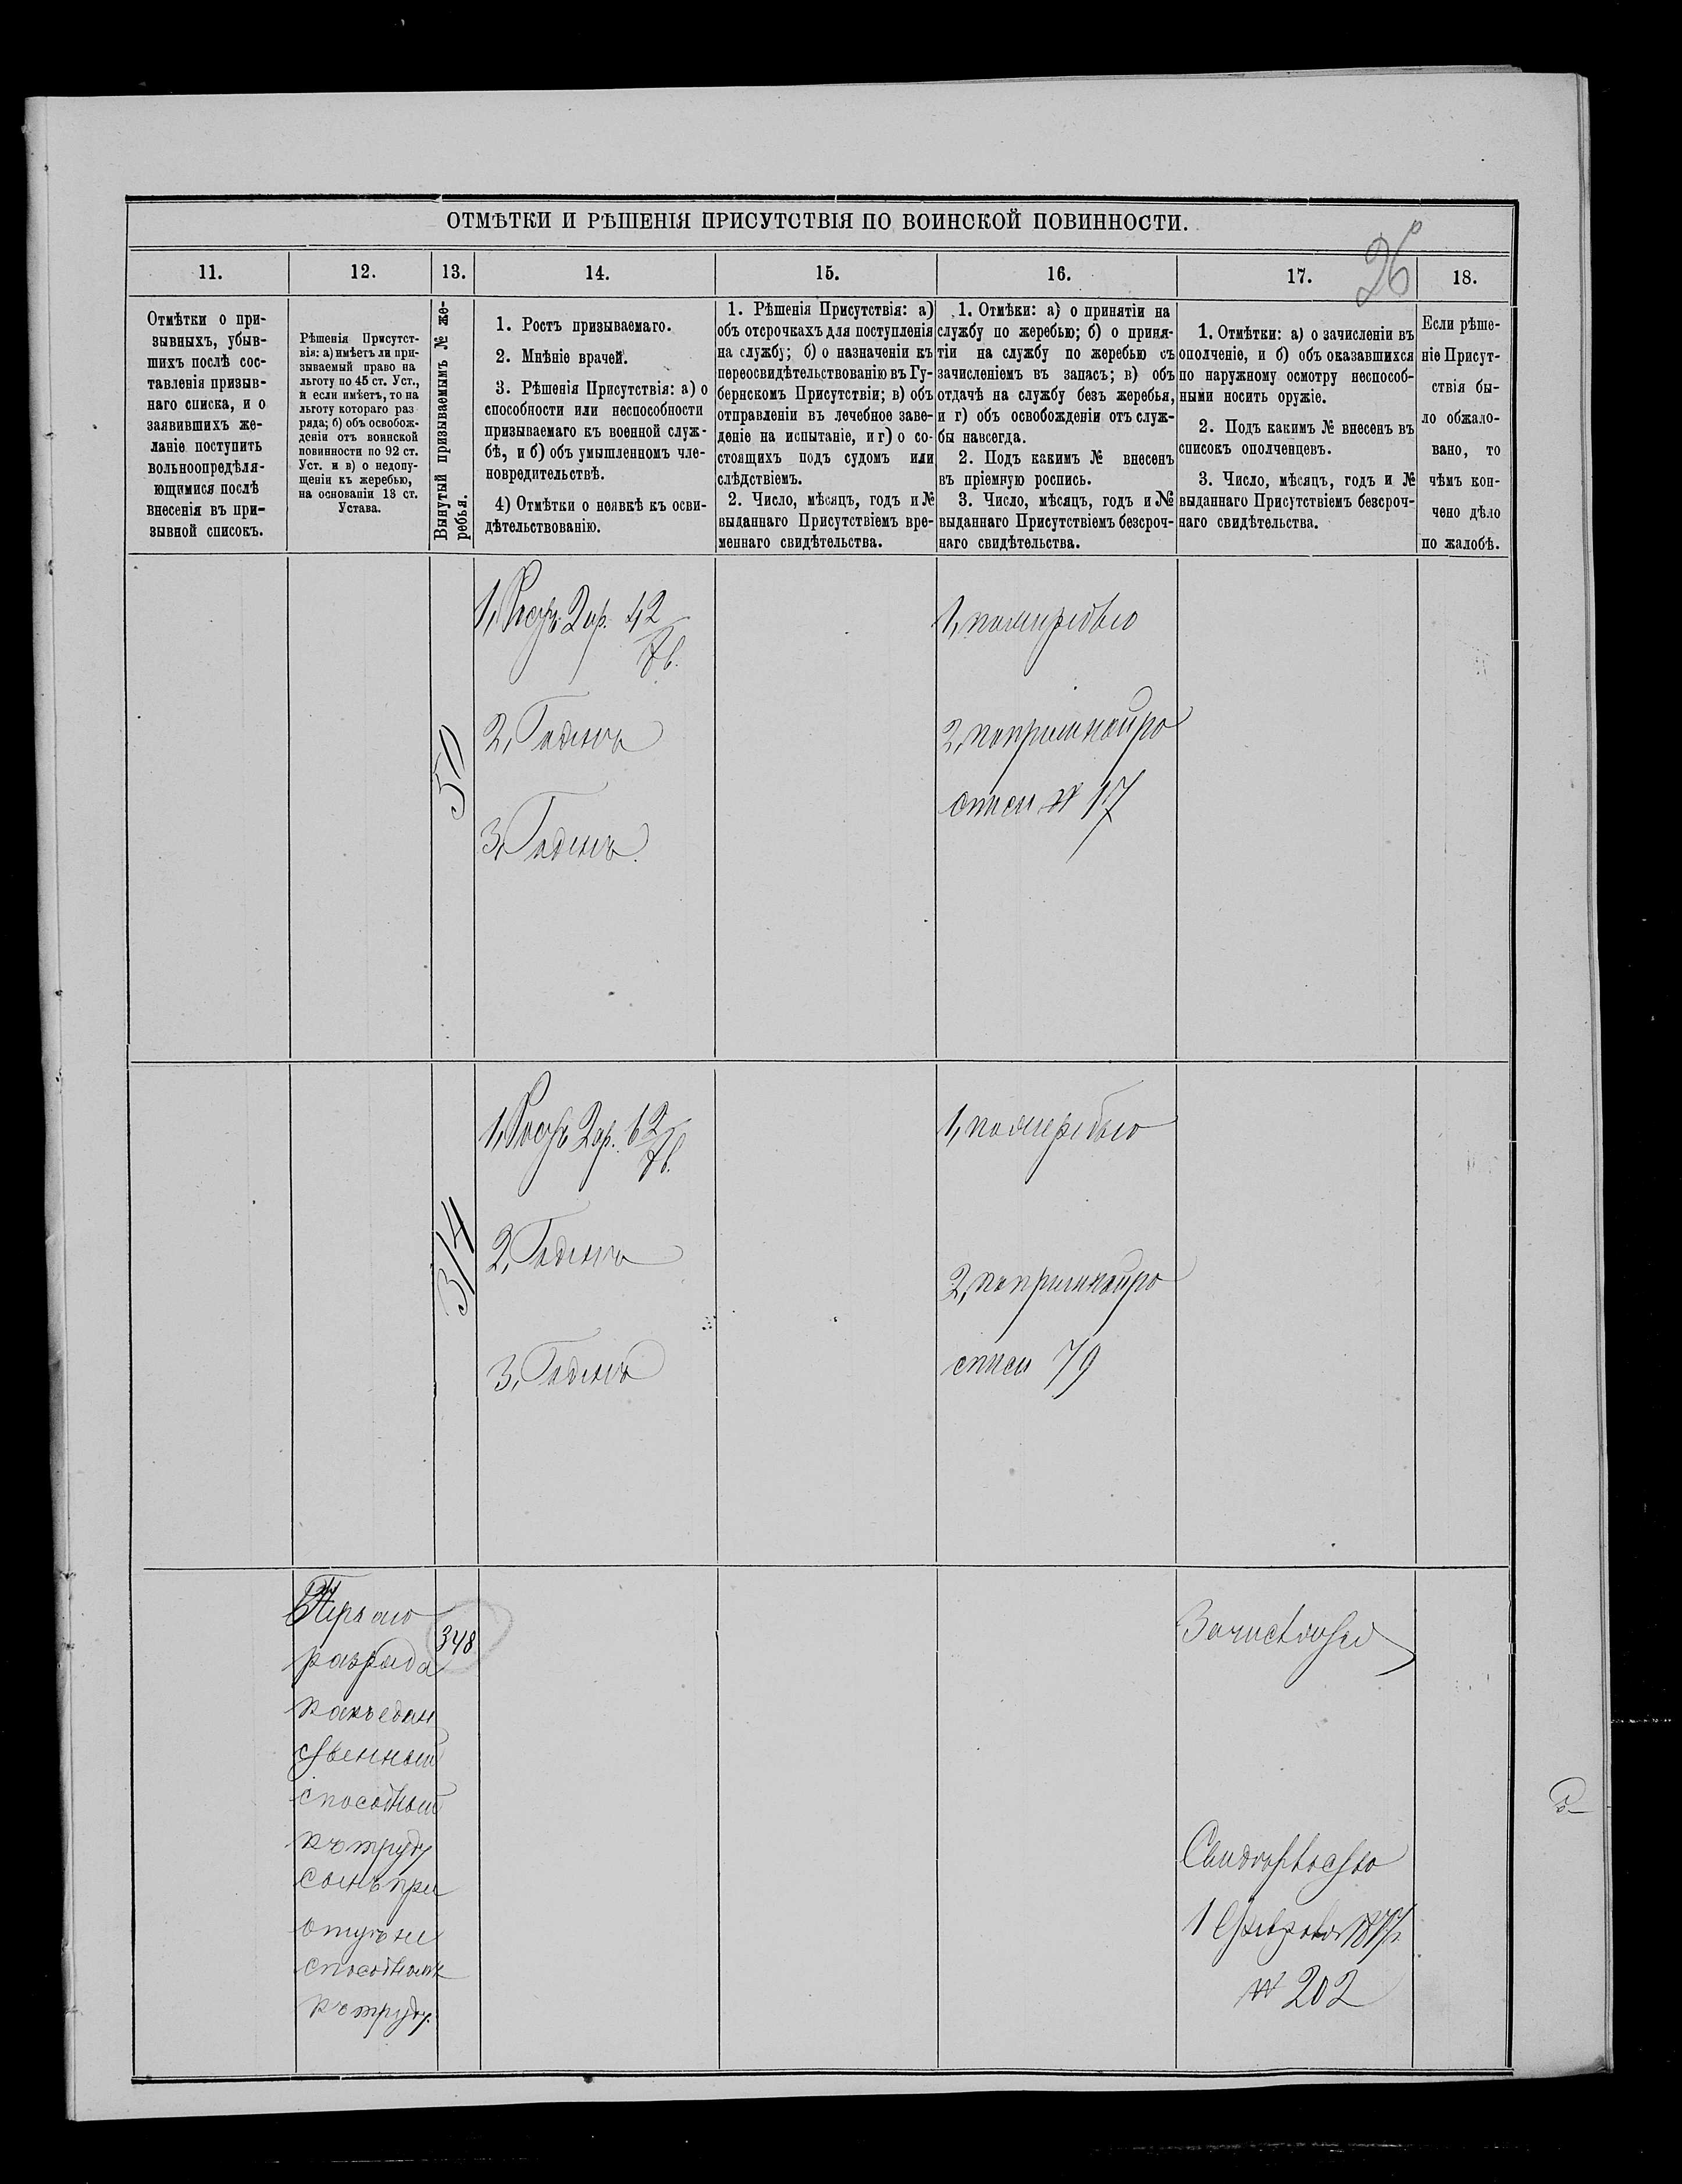 ОТМѢТКИ И РѢШЕНІЯ ПРИСУТСТВІЯ ПО ВОИНСКОЙ ПОВИННОСТИ.
26
11.
12.
13.
14.
15.
16.
17.
18.
Отмѣтки о при-
зывныхъ, убыв-
шихъ послѣ сос-
тавленія призыв-
наго списка, и о
заявившихъ же-
ланіе поступить
вольноопредѣля-
ющимися послѣ
внесенія въ при-
зывной списокъ.
Рѣшенія Присутст-
вія: а) имѣетъ ли при-
зываемый право на
льготу по 45 ст. Уст.,
и если имѣетъ, то на
льготу котораго раз
ряда; б) объ освобож-
деніи отъ воинской
повинности по 92 ст.
Уст. и в) о недопу-
щеніи къ жеребью,
на основаніи 13 ст.
Устава.
Вынутый призываемымъ № же-
ребья.
1. Ростъ призываемаго.
2. Мнѣніе врачей.
3. Рѣшенія Присутствія: а) о
способности или неспособности
призываемаго къ военной служ-
бѣ, и б) объ умышленномъ чле-
новредительствѣ.
4) Отмѣтки о неявкѣ къ осви-
дѣтельствованію.
1. Рѣшенія Присутствія: а)
объ отсрочкахъ для поступленія
на службу; б) о назначеніи къ
переосвидѣтельствованію въ Гу-
бернскомъ Присутствіи; в) объ
отправленіи въ лечебное заве-
деніе на испытаніе, и г) о со-
стоящихъ подъ судомъ или
слѣдствіемъ.
2. Число, мѣсяцъ, годъ и №
выданнаго Присутствіемъ вре-
меннаго свидѣтельства.
1. Отмѣки: а) о принятіи на
службу по жеребью; б) о приня-
тіи на службу по жеребью съ
зачисленіемъ въ запасъ; в) объ
отдачѣ на службу безъ жеребья,
и г) объ освобожденіи отъ служ-
бы навсегда.
2. Подъ какимъ № внесенъ
въ пріемную роспись.
3. Число, мѣсяцъ, годъ и №
выданнаго Присутствіемъ безсроч-
наго свидѣтельства.
1. Отмѣтки: а) о зачисленіи въ
ополченіе, и б) объ оказавшихся
по наружному осмотру неспособ-
ными носить оружіе.
2. Подъ какимъ № внесенъ въ
списокъ ополченцевъ.
3. Число, мѣсяцъ, годъ и №
выданнаго Присутствіемъ безсроч-
наго свидѣтельства.
Если рѣше-
ніе Присут-
ствія бы-
ло обжало-
вано, то
чѣмъ кон-
чено дѣло
по жалобѣ.
50
1, Ростъ 2 ар. 4 2/7 в.
2, Годенъ
3, Годенъ.
1, по жеребью
2, по пріемной ро
списи № 17
314
1, Ростъ 2 ар. 6 2/7 в.
2, Годенъ
3, Годенъ
1, по жеребью
2, по пріемной ро
списи 79
Перваго
разряда
какъ един
ственный
способный
къ труду
сынъ при
отцѣ не
способномъ
къ труду.
348
Свидѣтельство
1 Февраля 1877 г.
№ 202